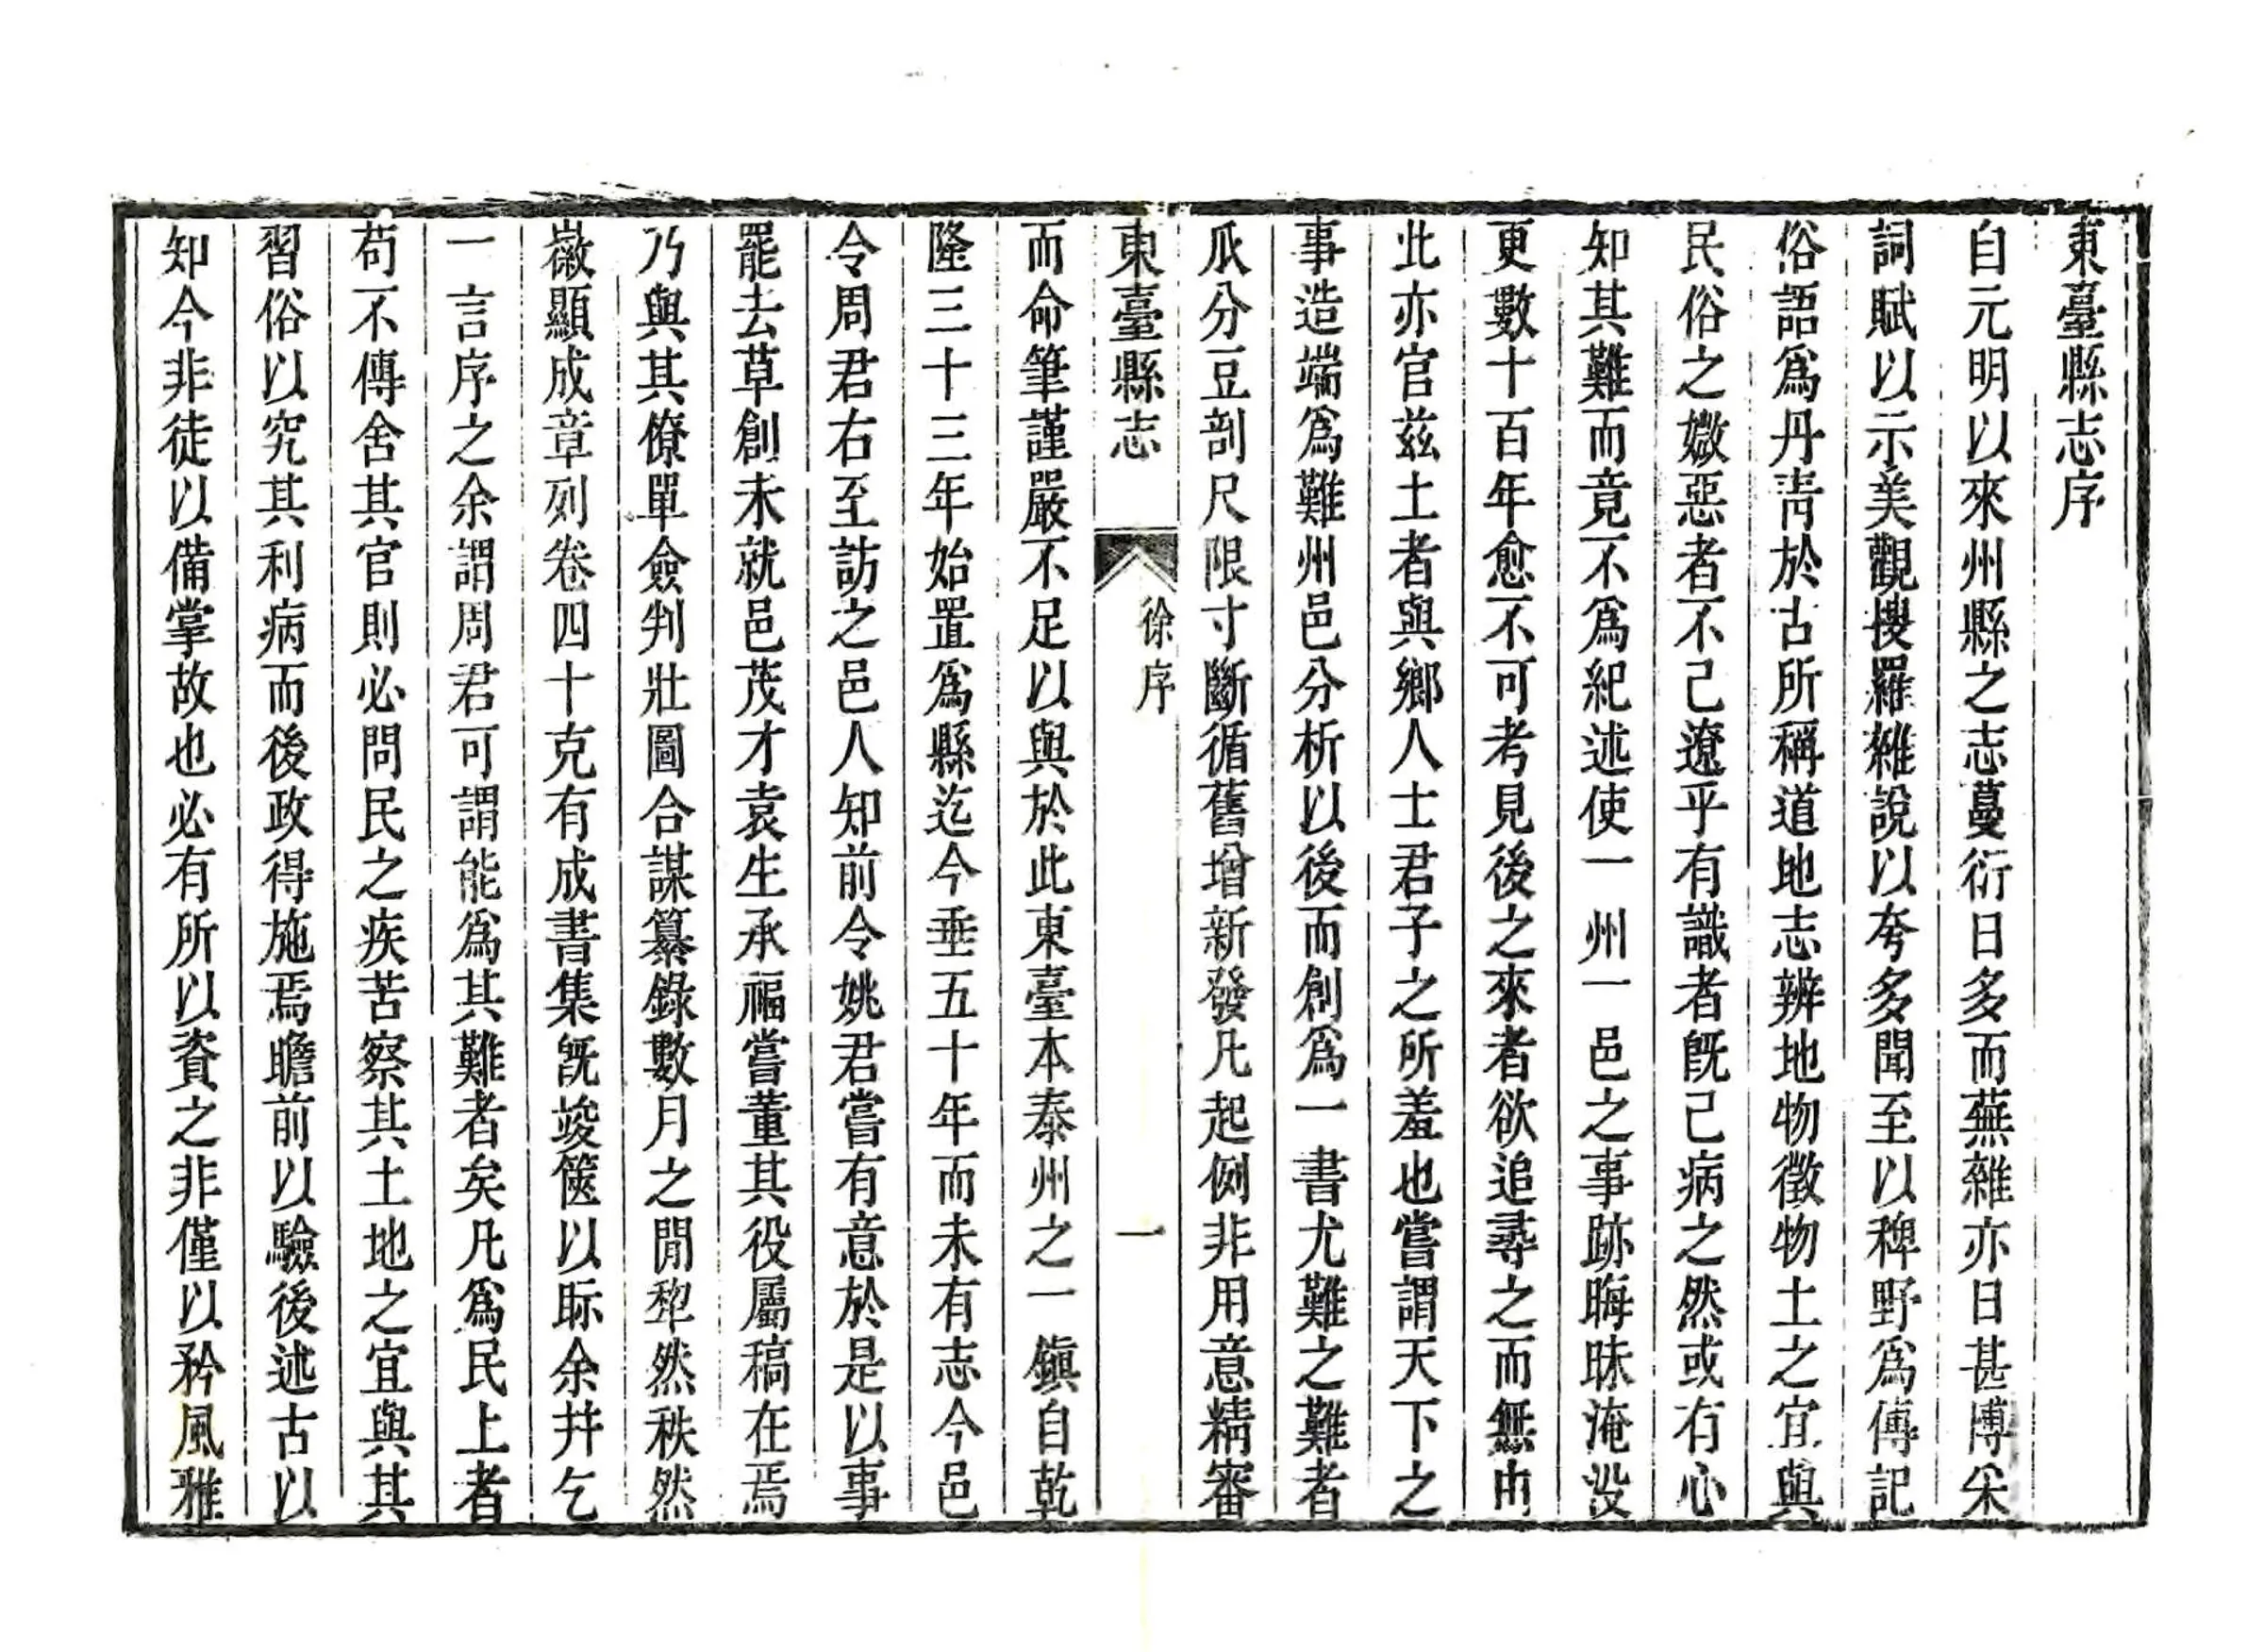 東臺縣志序
自元明以來州縣之志蔓衍日多而蕪雜亦日甚博采
詞賦以示美觀摟羅雜說以夸多聞至以稗野爲傳記
俗語爲丹靑於古所稱道地志辨地物徵物土之宜與
民俗之媺惡者不己遼乎有識者旣己病之然或有心
知其難而竟不爲紀述使一州一邑之事跡晦昧淹沒
更數十百年愈不可考見後之來者欲追尋之而無由
此亦官兹土者與鄉人士君子之所羞也嘗謂天下之
事造端爲難州邑分析以後而創爲一書尤難之難者
瓜分豆剖尺限寸斷循舊增新發凡起例非用意精審
東臺縣志
徐序
一
而命筆謹嚴不足以與於此東臺本泰州之一鎭自乾
隆三十三年始置爲縣迄今垂五十年而未有志今邑
令周君右至訪之邑人知前令姚君嘗有意於是以事
罷去草創未就邑茂才袁生承福嘗董其役屬稿在焉
乃與其僚單僉判壯圖合謀纂錄數月之閒犂然秩然
微顯成章列卷四十克有成書集旣竣篋以眎余幷乞
一言序之余謂周君可謂能爲其難者矣凡爲民上者
苟不傳舍其官則必問民之疾苦察其土地之宜與其
習俗以究其利病而後政得施焉瞻前以驗後述古以
知今非徒以備掌故也必有所以資之非僅以矜風雅